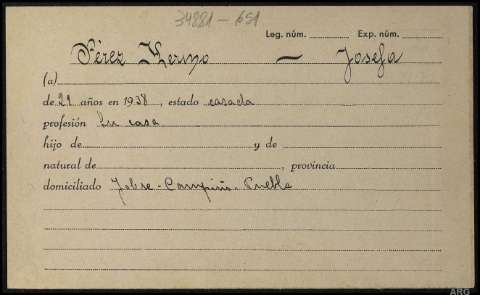 34881-651
Leg. núm. Exp. núm.
Pérez Merino — Josefa
(a)
de 21 años en 1938, estado casada
profesión Su casa
hijo de y de
natural de , provincia
domiciliado Jobre - Campiño - Puebla
ARG